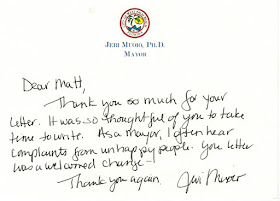 JERI MUOIO, PH.D.
MAYOR
Dear Matt,
Thank you so much for your
letter. It was so thoughtful of you to take
time to write. As a Mayor, I often hear
complaints from unhappy people. You letter
was a welcomed change-
Thank you again. Jeri Muoio